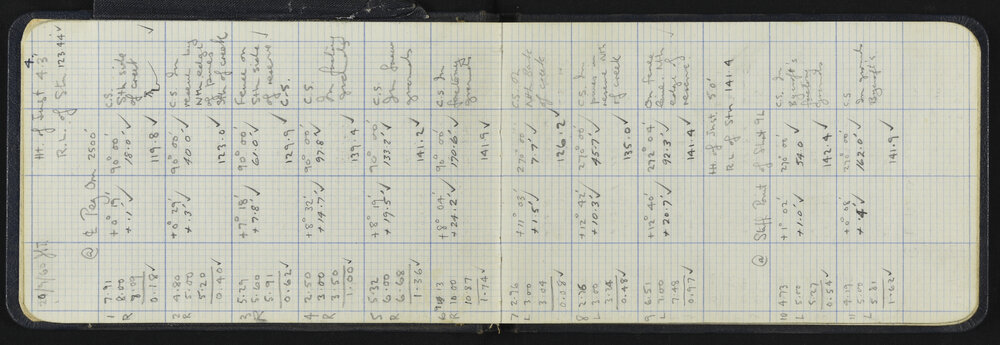 20/9/60 Ht. of Inst 4.3'
R.L. of Stn 123.44 ✓
@ ₵ Peg Om 2500'
1 7.91 +0° 19' 90° 00' C.S.
R 8.00 +.1 ✓ 18.0 ✓ Sth side
8.09 of creek
0.18 ✓ 119.8 ✓
2 4.80 +0° 29' 90° 00' C.S. In
R 5.00 +.3 ✓ 40.0 ✓ reserve by
5.20 Nth edge
of pines
0.40 ✓ 123.0 ✓ Sth of creek
3 5.29 +7° 18' 90° 00' Fence on
R 5.60 +7.8 ✓ 61.0 ✓ Sth side
5.91 of reserve
0.62 ✓ 129.9 ✓ C.S.
4 2.50 +8° 32' 90° 00' C.S.
R 3.00 +14.7 ✓ 97.8 ✓ In factory
3.50 grounds
1.00 ✓ 139.4 ✓
5 5.32 +8° 19' 90° 00' C.S.
R 6.00 +19.5 ✓ 133.2 ✓ In factory
6.68 grounds
1.36 ✓ 141.2 ✓
6 9.13 +8° 04' 90° 00' C.S. In
R 10.00 +24.2 ✓ 170.6 ✓ factory
10.87 grounds
1.74 ✓ 141.9 ✓
7 2.96 +11° 03' 270° 00' C.S. On
L 3.00 +1.5 ✓ 7.7 ✓ Nth bank
3.04 of creek
0.08 ✓ 126.2 ✓
8 2.76 +12° 42' 270° 00' C.S. In
L 3.00 +10.3 ✓ 45.7 ✓ pines in
3.24 reserve
of creek
0.48 ✓ 135.0 ✓
9 6.51 +12° 40' 272° 04' On fence
L 7.00 +20.7 ✓ 92.3 ✓ line Nth
7.48 edge of
0.97 ✓ 141.4 ✓ reserve
Ht of Inst 5.0'
R.L of Stn 141.4
@ Staff Point of Shot 9L
10 4.73 +1° 02' 270° 02' C.S. In
L 5.00 +1.0 ✓ 54.0 ✓ Bycroft's
5.27 factory
0.54 ✓ 142.4 ✓ grounds
11 4.19 +0° 08' 270° 00' C.S.
L 5.00 +.4 ✓ 162.0 ✓ In grounds
5.81 Bycroft's
1.62 ✓ 141.9 ✓